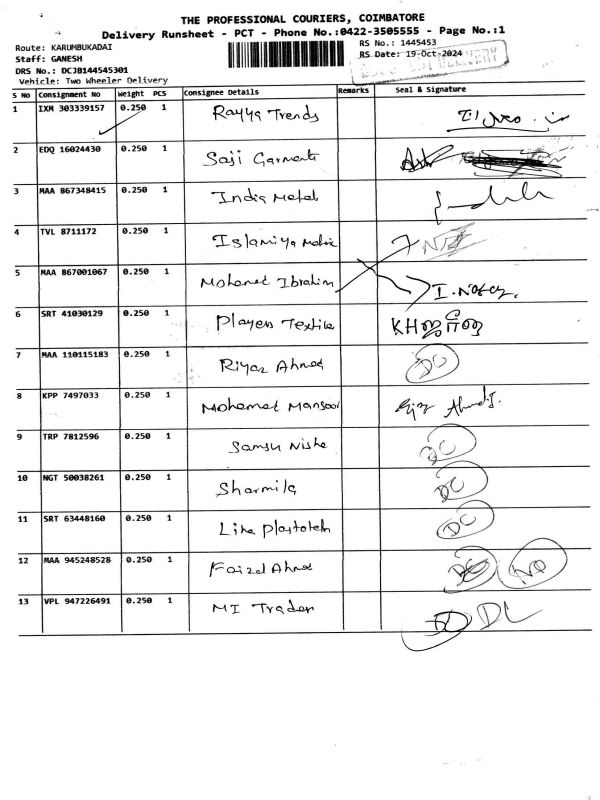 THE PROFESSIONAL COURIERS, COIMBATORE
Delivery Runsheet - PCT - Phone No.:0422-3505555 - Page No.:1
Route: KARUMBUKADAI
RS No.: 1445453
Staff: GANESH
RS Date: 19-Oct-2024
DELIVERY
DRS No.: DCJB144545301
Vehicle: Two Wheeler Delivery
S No Consignment No Weight PCS Consignee Details Remarks Seal & Signature
1 IXM 303339157 0.250 1 Rayya Trends
2 EDQ 16024430 0.250 1 Saji Garments
3 MAA 867348415 0.250 1 India Metal
4 TVL 8711172 0.250 1 Islamiya
5 MAA 867001067 0.250 1 Mohamet Ibrahim
6 SRT 41030129 0.250 1 Players Textile
7 MAA 110115183 0.250 1 Riyaz Ahmed DC
8 KPP 7497033 0.250 1 Mohamet Mansoor
9 TRP 7812596 0.250 1 Samsu Nisha DC
10 NGT 50038261 0.250 1 Sharmila DC
11 SRT 63448160 0.250 1 DC
12 MAA 945248528 0.250 1 Faizal Ahmed DC
13 VPL 947226491 0.250 1 MI Trader DL